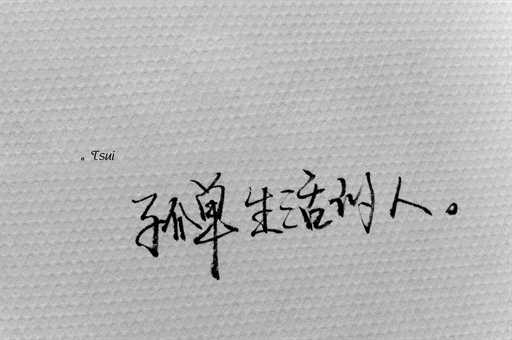 。Tsui
孤单生活的人。